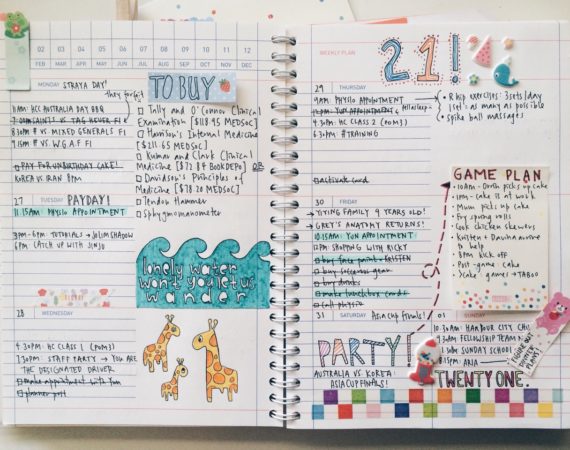 01 02 03 04 05 06 07 08 09 10 11 12
FEB MAR APR MAY JUN JUL AUG SEP OCT NOV DEC
MONDAY STRAYA DAY!
11AM: HCC AUSTRALIA DAY BBQ
8:30PM # VS MIXED GENERALS F1
9:15PM # VS W.G.A.F F1
PAY FOR UNBIRTHDAY CAKE!
KOREA VS IRAN 8PM
27 TUESDAY PAYDAY!
11.15AM: PHYSIO APPOINTMENT
3PM - 6PM TUTORIALS
6PM CATCH UP WITH JINJU
28 WEDNESDAY
4.30PM: HC CLASS 1 (POM3)
7.30PM: STAFF PARTY → YOU ARE
THE DESIGNATED DRIVER
make appointment with Tom
planner post
TO BUY
Tally and O'Connor Clinical
Examination [$118 MEDSOC]
Harrison's Internal Medicine
[$211.65 MEDSOC]
Kumar and Clark Clinical
Medicine [$72.84 BOOKDEPO] OR
Davidson's Principles of
Medicine [$78.20 MEDSOC]
Tendon Hammer
Sphygmomanometer
lonely water
won't you let us
wander
WEEKLY PLAN
21!
29 THURSDAY
9AM PHYSIO APPOINTMENT
4.30PM: HC CLASS 2 (POM3)
6.30PM: #TRAINING
activate card
R hip exercises: 3sets/day
1set: as many as possible
spike ball massages
30 FRIDAY
→ YIYING FAMILY 9 YEARS OLD!
→ GREY'S ANATOMY RETURNS!
10.15AM: YUN APPOINTMENT
PM: SHOPPING WITH RICKY
buy face paint - KRISTEN
buy drinks
make lunchbox cards
call physio
GAME PLAN
10AM - Oorth picks up cake
1PM - cake is at work
Mum picks up cake
Fry spring rolls
Cook chicken skewers
Kristen + Davina arrive
to help
8PM kick off
Post-game cake
Jcake games → TABOO
31 SATURDAY ASIA CUP FINALS!
PARTY!
AUSTRALIA VS KOREA:
ASIA CUP FINALS!
01 SUNDAY
10.30AM: HARBOUR CITY
SUNDAY SCHOOL
TWENTY ONE.